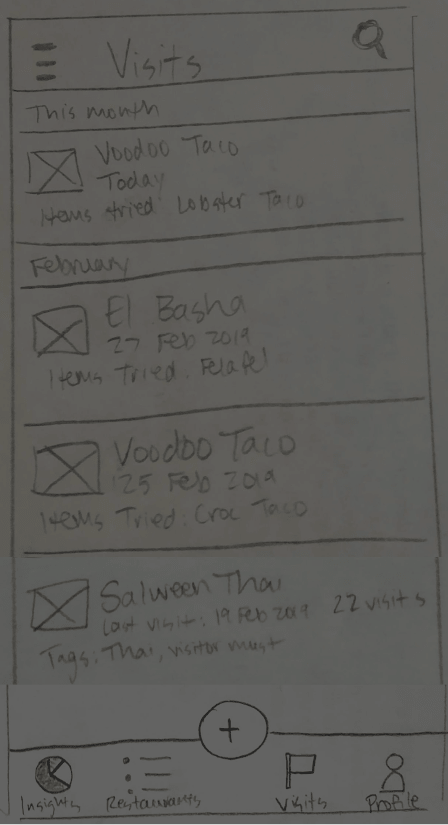 Visits
This month
Voodoo Taco
Today
Items tried: Lobster Taco
February
El Basha
27 Feb 2019
Items Tried: Felafel
Voodoo Taco
25 Feb 2019
Items Tried: Croc Taco
Salween Thai
Last visit: 19 Feb 2019 22 visits
Tags: Thai, visitor must
+
Insights Restaurants Visits Profile